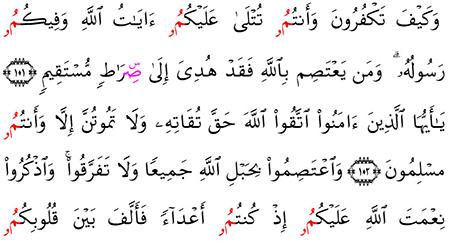 وَكَيْفَ تَكْفُرُونَ وَأَنتُمُۥ تُتْلَىٰ عَلَيْكُمُۥ ءَايَٰتُ ٱللَّهِ وَفِيكُمُۥ
رَسُولُهُۥ ۗ وَمَن يَعْتَصِم بِٱللَّهِ فَقَدْ هُدِىَ إِلَىٰ صِرَٰطٍ مُّسْتَقِيمٍ ﴿١٠١﴾
يَٰٓأَيُّهَا ٱلَّذِينَ ءَامَنُوا۟ ٱتَّقُوا۟ ٱللَّهَ حَقَّ تُقَاتِهِۦ وَلَا تَمُوتُنَّ إِلَّا وَأَنتُمُۥ
مُسْلِمُونَ ﴿١٠٢﴾ وَٱعْتَصِمُوا۟ بِحَبْلِ ٱللَّهِ جَمِيعًا وَلَا تَفَرَّقُوا۟ ۚ وَٱذْكُرُوا۟
نِعْمَتَ ٱللَّهِ عَلَيْكُمُۥ إِذْ كُنتُمُۥ أَعْدَآءً فَأَلَّفَ بَيْنَ قُلُوبِكُمُۥ